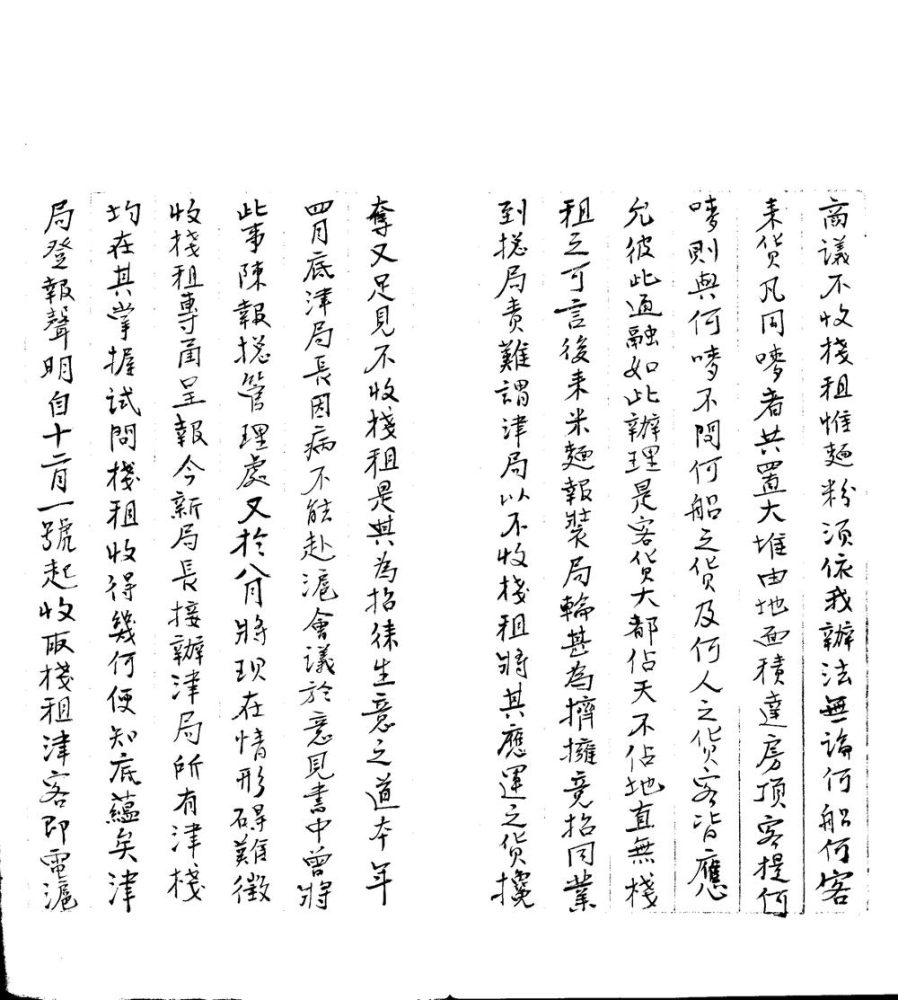 商議不收棧租惟麵粉須依我辦法無論何船何客
來貨凡同嘜者共置大堆由地面積達房頂客提何
嘜則與何嘜不問何船之貨及何人之貨客皆應
允彼此通融如此辦理是客貨大都佔天不佔地直無棧
租之可言後來米麵報裝局輪甚為擠擁竟招同業
到揔局責難謂津局以不收棧租將其應運之貨攙
奪又足見不收棧租是其為招徠生意之道本年
四月底津局長因病不能赴滬會議於意見書中曾將
此事陳報揔管理處又於八月將現在情形碍難徵
收棧租專函呈報今新局長接辦津局所有津棧
均在其掌握試問棧租收得幾何便知底蘊矣津
局登報聲明自十二月一號起收取棧租津客即電滬